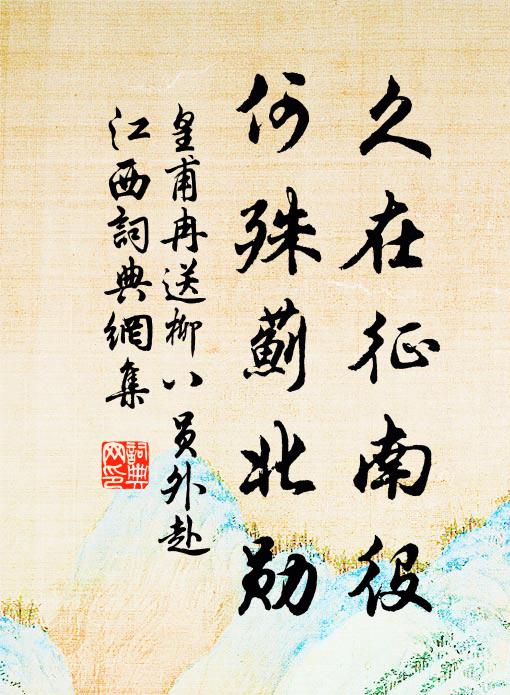 久在征南役
何殊蓟北勋
皇甫冉送柳八员外赴
江西詞典網集
詞典
网印